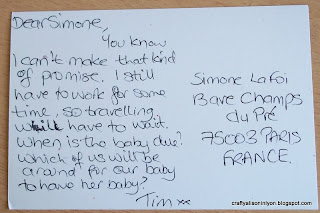 Dear Simone,
You know
I can't make that kind
of promise. I still
have to work for some
time, so travelling
will have to wait.
When is the baby due?
Which of us will be
around for our baby
to have her baby?
Tim xx
Simone La Foi
Bave Champs
du Pré
75003 PARIS
FRANCE.
craftyalisoninlyon.blogspot.com